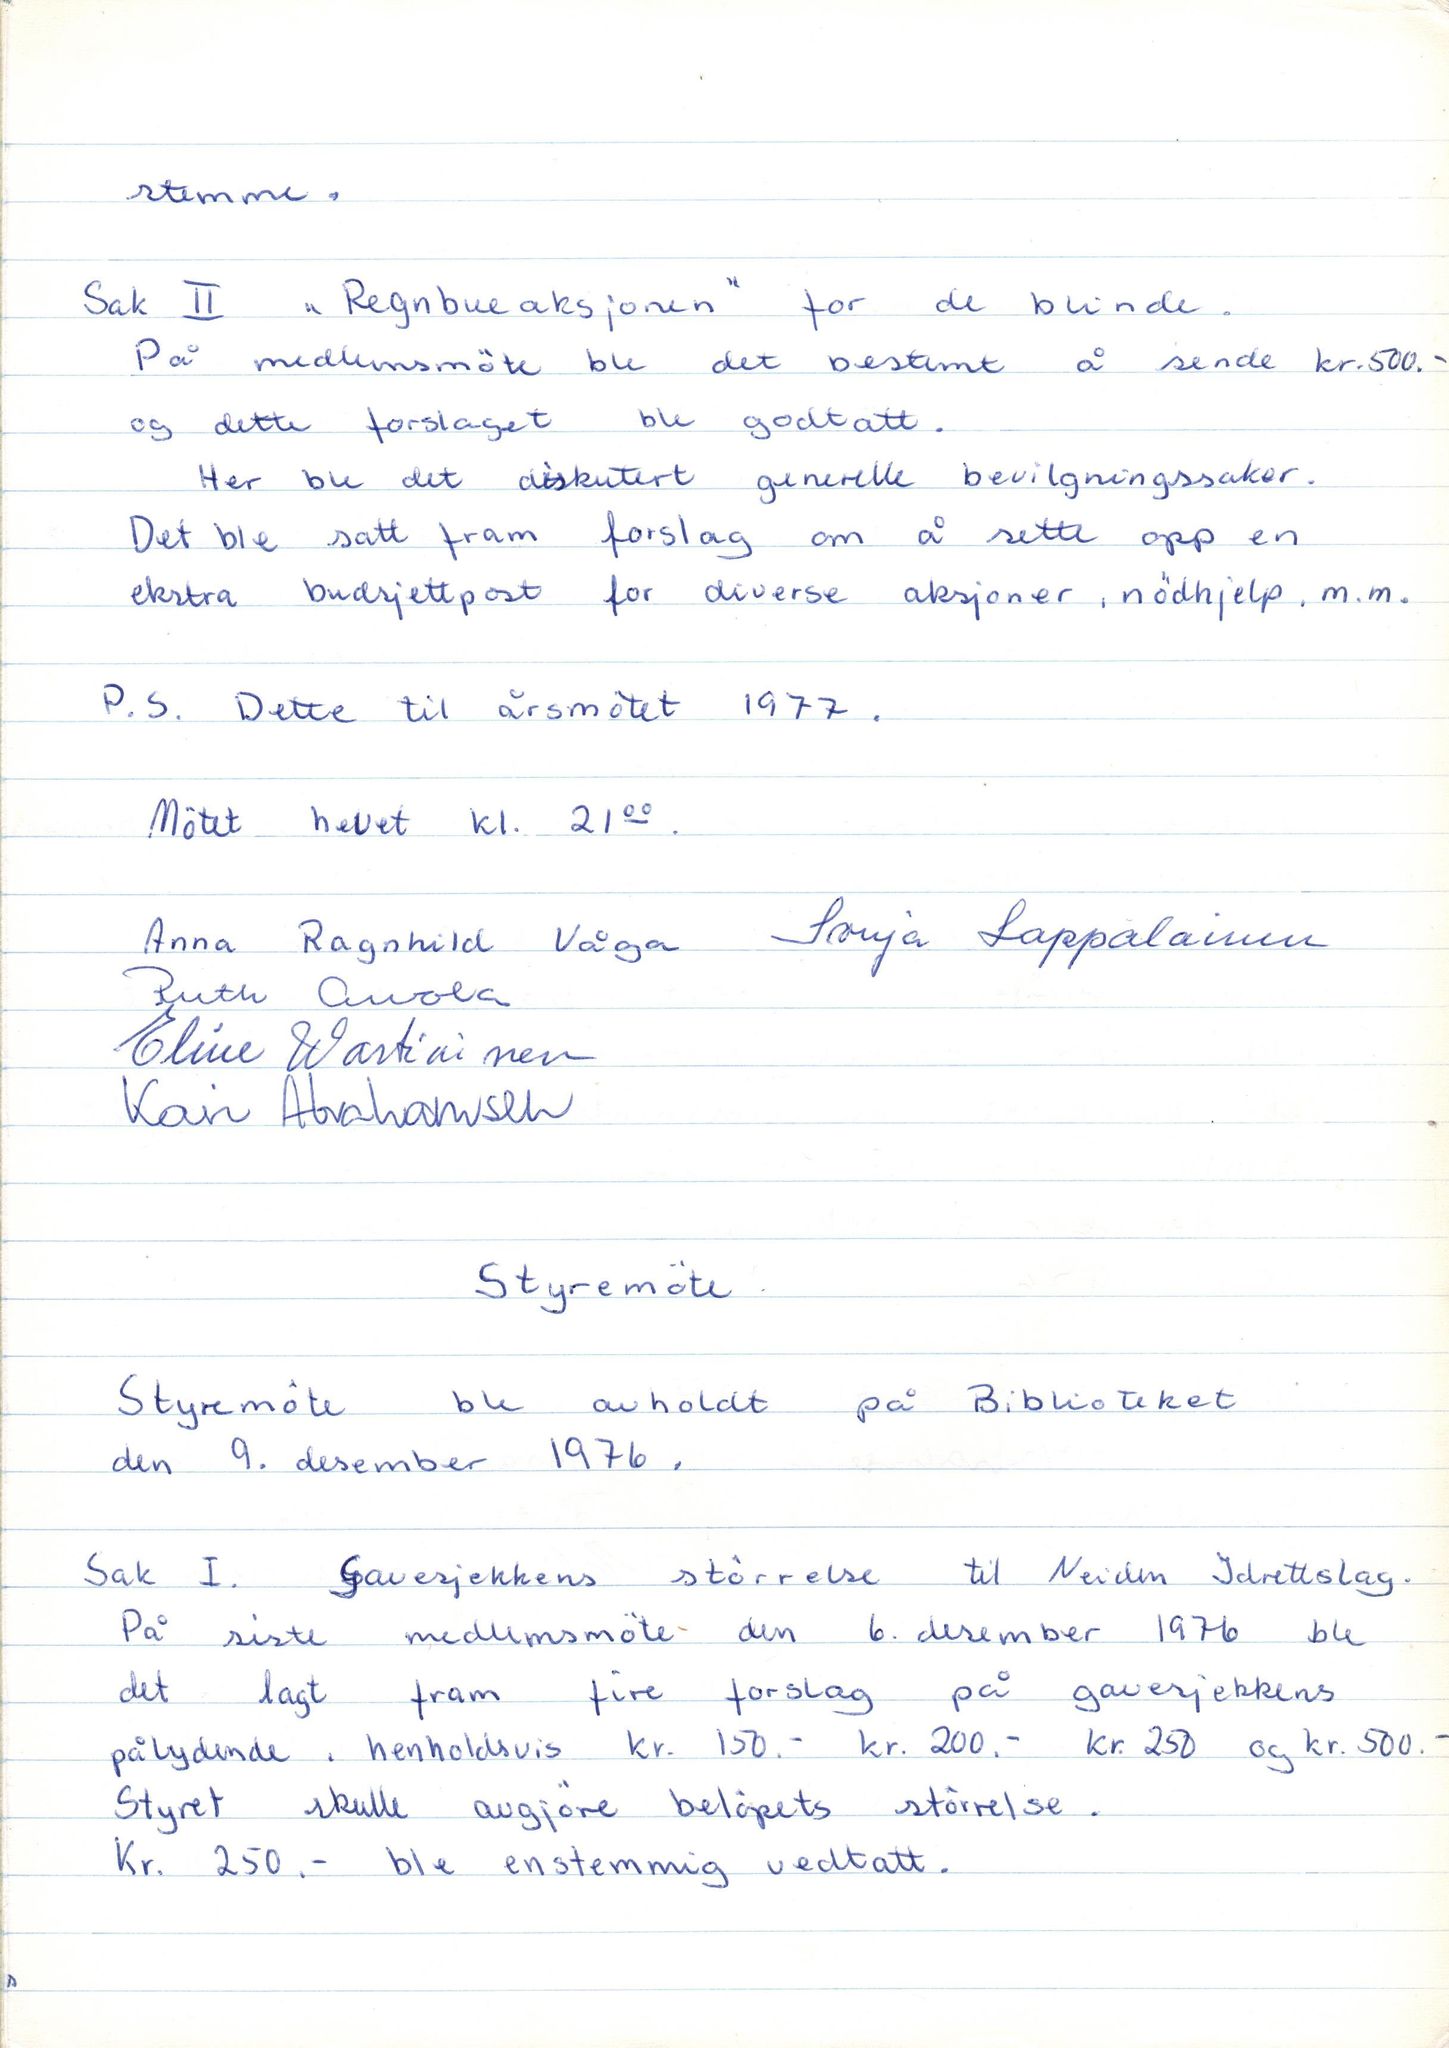 stemme.
Sak II "Regnbueaksjonen" for de blinde.
På medlemsmöte ble det bestemt å sende kr. 500.-
og dette forslaget ble godtatt.
Her ble det diskutert generelle bevilgningssaker.
Det ble satt fram forslag om å sette opp en
ekstra budsjettpost for diverse aksjoner, nödhjelp, m.m.
P.S. Dette til årsmötet 1977.
Mötet hevet kl. 21⁰⁰.
Anna Ragnhild Våga Sonja Lappalainen
Ruth
Eline Wartiainen
Karin Abrahamsen
Styremöte
Styremöte ble avholdt på Biblioteket
den 9. desember 1976.
Sak I. Gavesjekkens störrelse til Neiden Idrettslag.
På siste medlemsmöte den 6. desember 1976 ble
det lagt fram fire forslag på gavesjekkens
pålydende, henholdsvis kr. 150.- kr. 200.- kr. 250 og kr. 500.-
Styret skulle avgjöre belöpets störrelse.
Kr. 250.- ble enstemmig vedtatt.